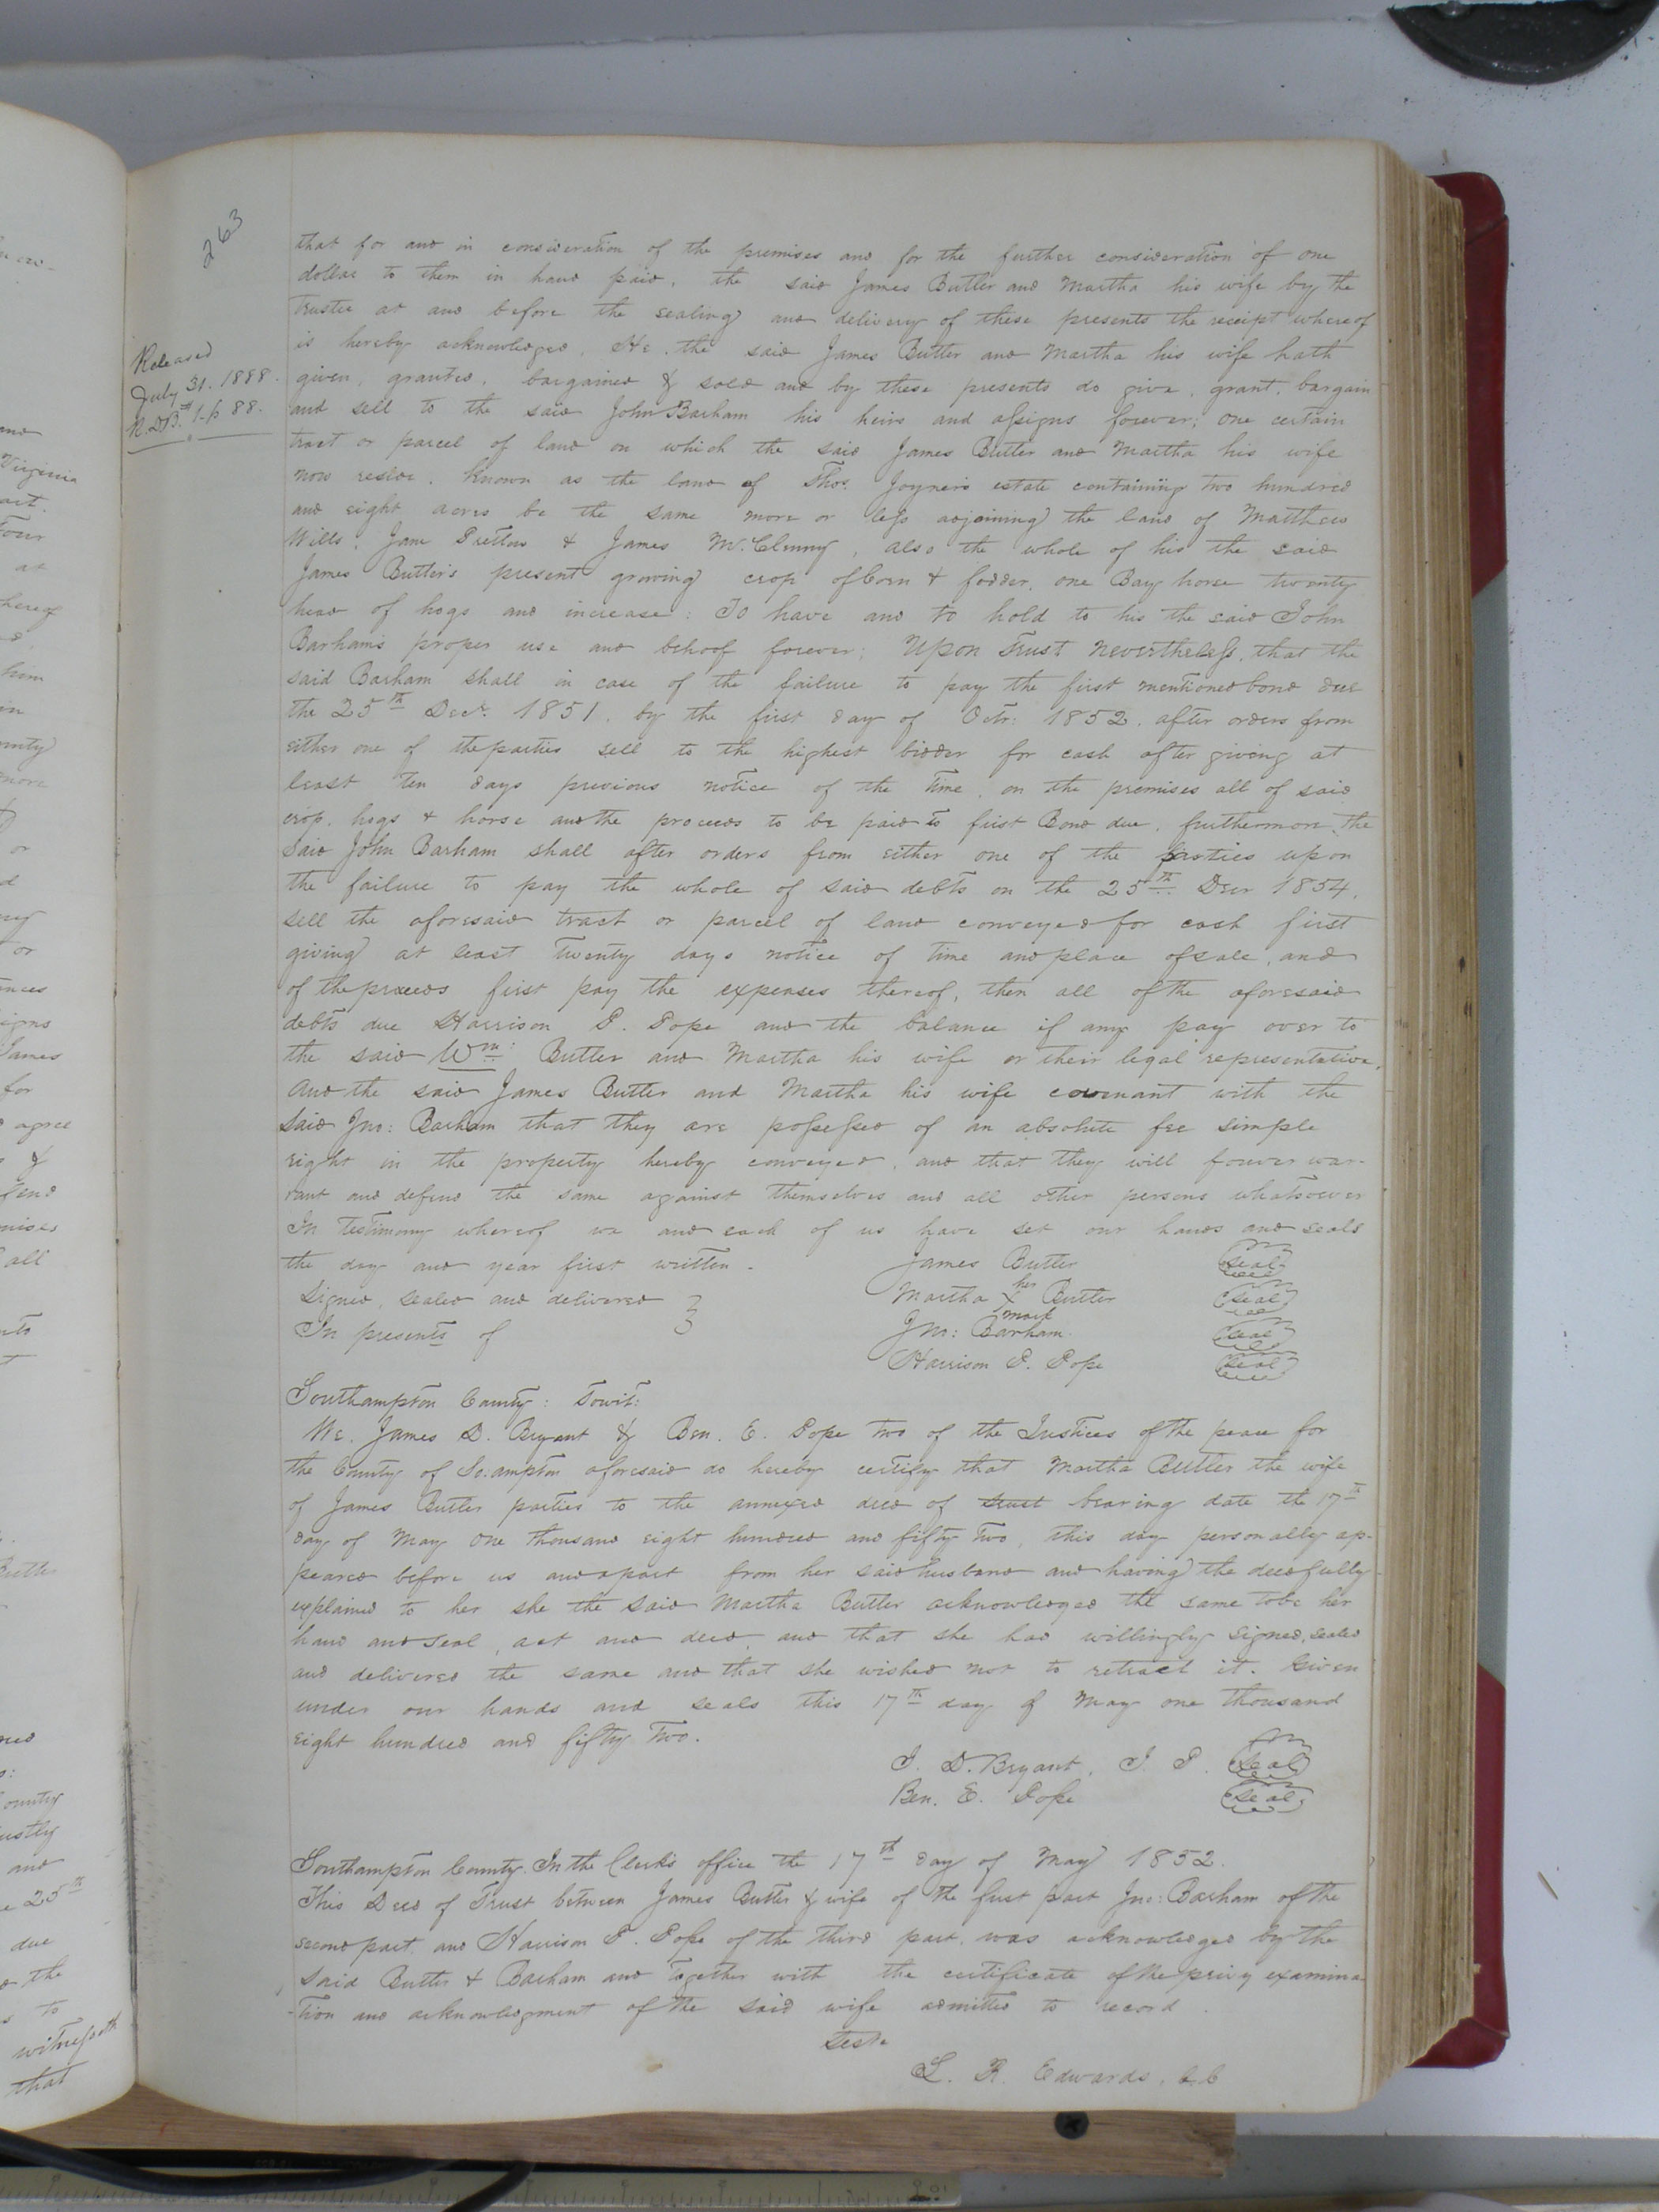 263
Released
July 31. 1888.
R.D.B. #1-p 88.
that for and in consideration of the premises and for the further consideration of one
dollar to them in hand paid, the said James Butler and Martha his wife by the
trustee at and before the sealing and delivery of these presents the receipt whereof
is hereby acknowledged, He, the said James Butler and Martha his wife hath
given, granted, bargained & sold and by these presents do give, grant, bargain
and sell to the said John Barham his heirs and assigns forever; one certain
tract or parcel of land on which the said James Butler and Martha his wife
now reside, known as the land of Thos. Joyner's estate containing two hundred
and eight acres be the same more or less adjoining the land of Matthew
Wills, Jane & James McClenny, also the whole of his the said
James Butler's present growing crop of corn & fodder, one Bay horse twenty
head of hogs and increase: To have and to hold to his the said John
Barham's proper use and behoof forever; Upon Trust nevertheless, that the
said Barham shall in case of the failure to pay the first mentioned bond due
the 25th Decr. 1851, by the first day of Octr: 1852, after orders from
either one of the parties sell to the highest bidder for cash after giving at
least ten days previous notice of the time, on the premises all of said
crop, hogs & horse and the proceeds to be paid to first Bond due, furthermore, the
said John Barham shall after orders from either one of the parties upon
the failure to pay the whole of said debts on the 25th Decr 1854,
sell the aforesaid tract or parcel of land conveyed for cash first
giving at least twenty days notice of time and place of sale, and
of the proceeds first pay the expenses thereof, then all of the aforesaid
debts due Harrison P. Pope and the balance if any pay over to
the said Wm: Butler and Martha his wife or their legal representative,
And the said James Butler and Martha his wife covenant with the
said Jno: Barham that they are possessed of an absolute fee simple
right in the property hereby conveyed, and that they will forever war-
rant and defend the same against themselves and all other persons whatsoever
In testimony whereof we and each of us have set our hands and seals
the day and year first written.
James Butler seal
Signed, sealed and delivered
Martha her X mark Butler seal
In presents of
Jno: Barham seal
Harrison P. Pope seal
Southampton County: Towit:
We, James D. Bryant & Ben. E. Pope two of the Justices of the peace for
the County of So:ampton aforesaid do hereby certify that Martha Butler the wife
of James Butler parties to the annexed deed of trust bearing date the 17th
day of May One thousand eight hundred and fifty two, this day personally ap-
peared before us and apart from her said husband and having the deed fully
explained to her she the said Martha Butler acknowledged the same to be her
hand and seal, act and deed, and that she had willingly signed, sealed
and delivered the same and that she wished not to retract it. Given
under our hands and seals this 17th day of May one thousand
eight hundred and fifty two.
J. D. Bryant, J. P. seal
Ben. E. Pope seal
Southampton County. In the Clerk's office the 17th day of May 1852.
This Deed of Trust between James Butler & wife of the first part Jno: Barham of the
second part, and Harrison P. Pope of the third part, was acknowledged by the
said Butler & Barham and together with the certificate of the privy examina
-tion and acknowledgment of the said wife admitted to record.
Teste
L. R. Edwards, C.C